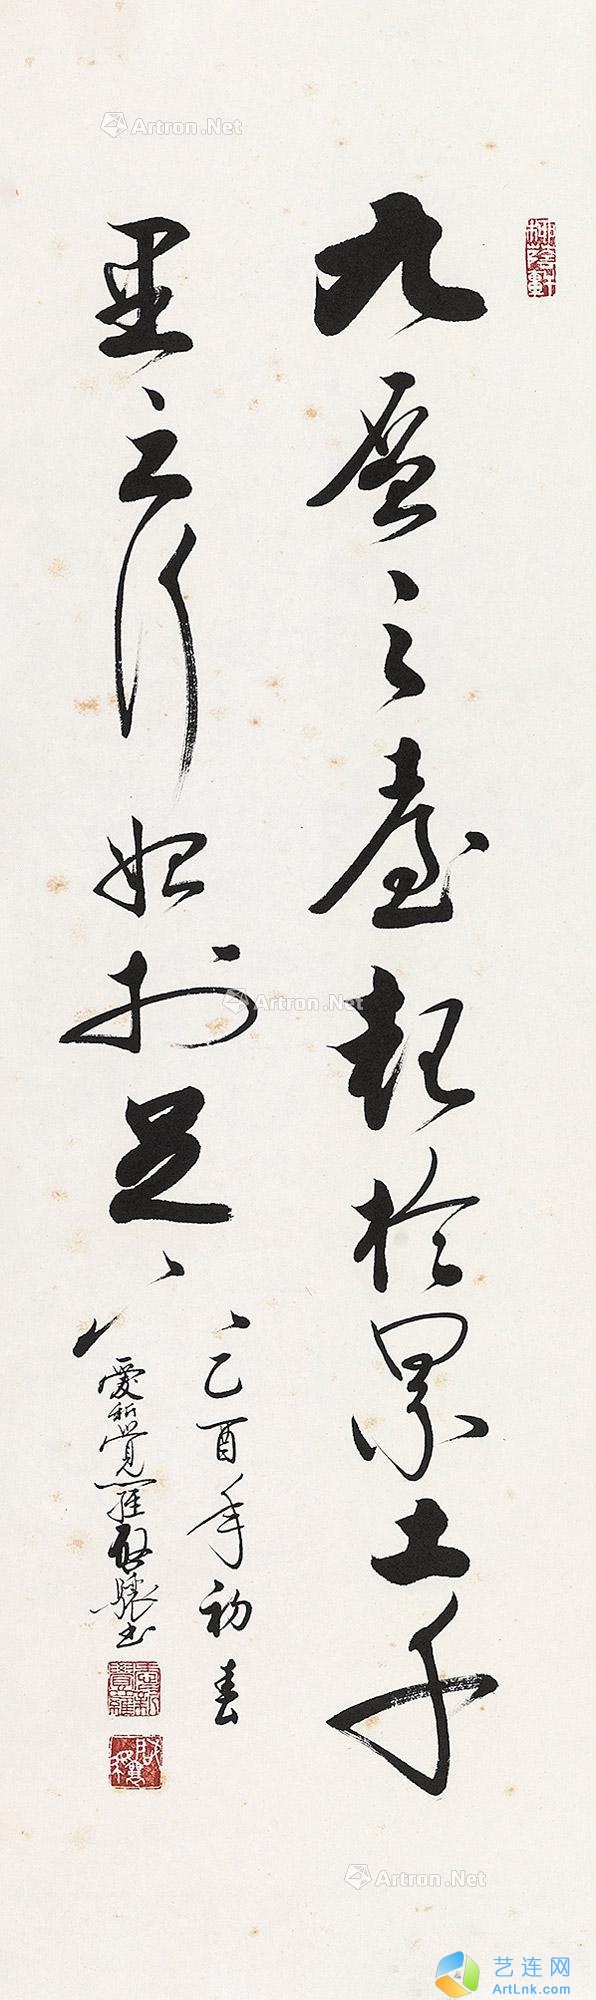 九层之台起於累土千
里之行始於足下
乙酉年初春
爱新觉罗启骧书
柳荫轩
Artron.Net
Artron.Net
Artron.Net
艺连网
ArtLnk.com